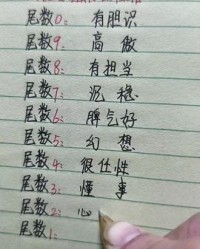 尾数0: 有胆识
尾数9: 高傲
尾数8: 有担当
尾数7: 沉稳
尾数6: 脾气好
尾数5: 幻想
尾数4: 很任性
尾数3: 懂事
尾数2: 心
尾数1: